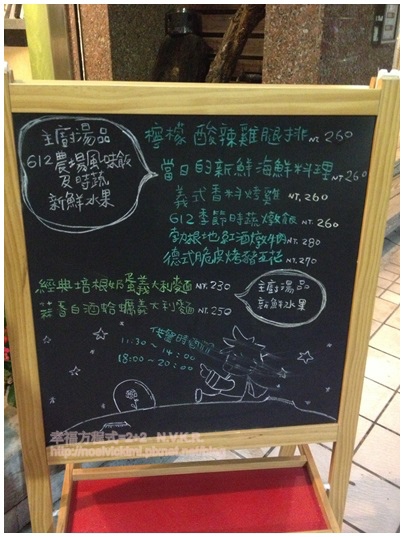 主廚湯品
612農場風味飯
及時蔬
新鮮水果
檸檬酸辣雞腿排NT.260
當日的新鮮海鮮料理NT.260
義式香料烤雞NT.260
612季節時蔬燉飯NT.260
勃根地紅酒燉牛肉NT.280
德式脆皮燒豬五花NT.290
經典培根奶蛋義大利麵NT.230
蒜香白酒蛤蠣義大利麵NT.250
主廚湯品
新鮮水果
供餐時間
11:30~14:00
18:00~20:00
幸福方程式=2+2 N.V.K.K.
http://noelvickimi.pixnet.net/blog